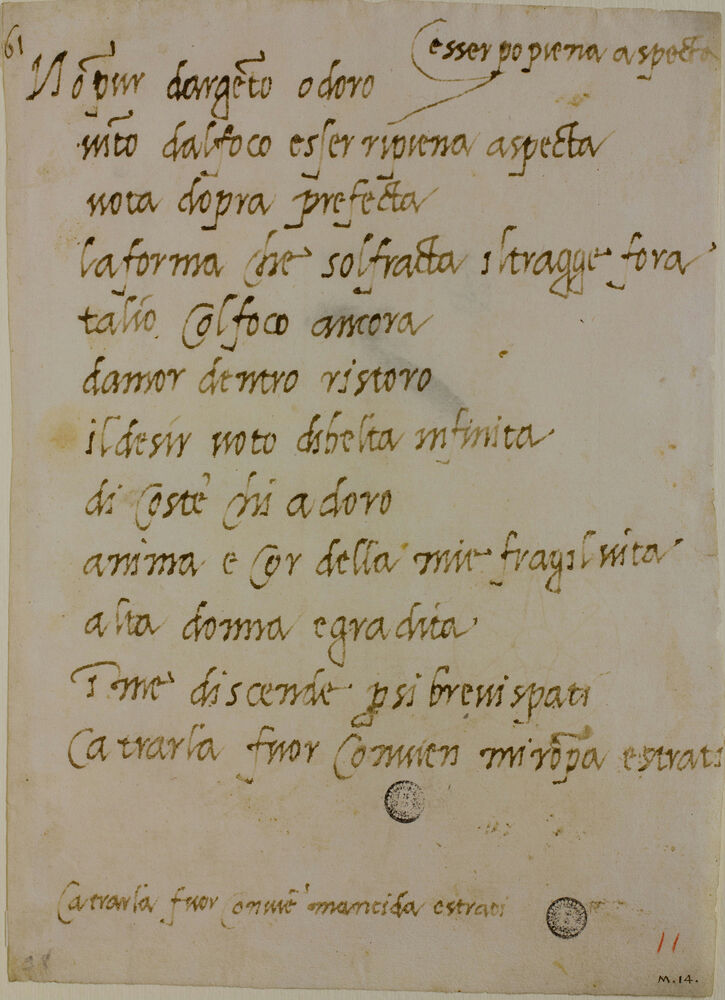 61
esser po piena aspecta
Nō pur dargēto o doro
vīto dalfoco esser ripiena aspecta
vota dopra prefecta
la forma che sol fracta il tragge fora
tal io col foco ancora
damor dentro ristoro
il desir voto di belta infinita
di coste chi adoro
anima e cor della mie fragil vita
alta donna e gradita
I me discende p si brevi spati
Ca trarla fuor convien mi rōpa e strati
Ca trarla fuor convie mancida e strati
11
M.14.